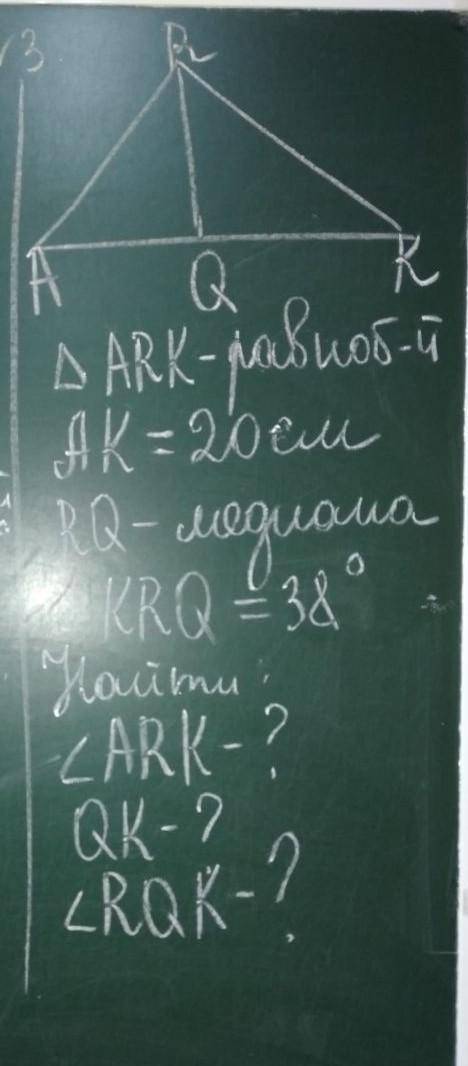 √3
R
A Q K
△ ARK - равноб-й
AK = 20 см
RQ - медиана
KRQ = 38°
Найти:
∠ARK - ?
QK - ?
∠RQK - ?